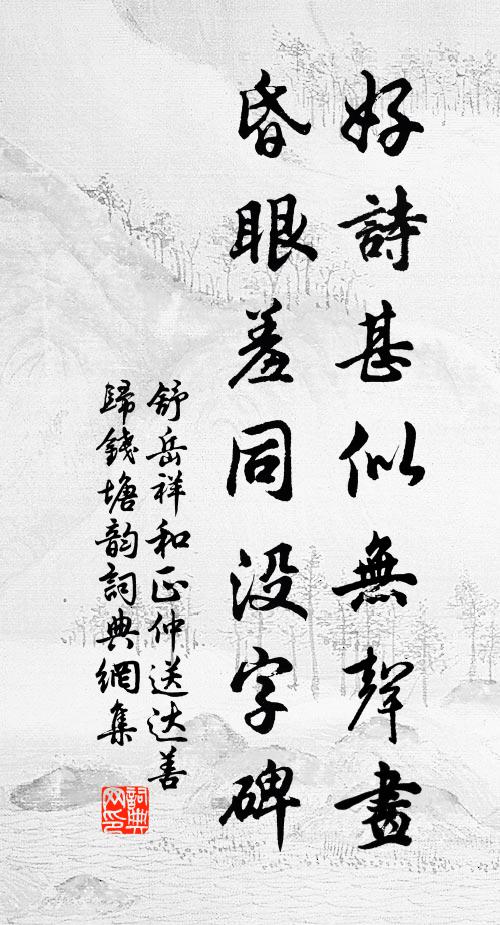 好詩甚似無聲畫
昏眼羞同没字碑
舒岳祥和正仲送达善
歸錢塘韵詞典網集
詞典
网印